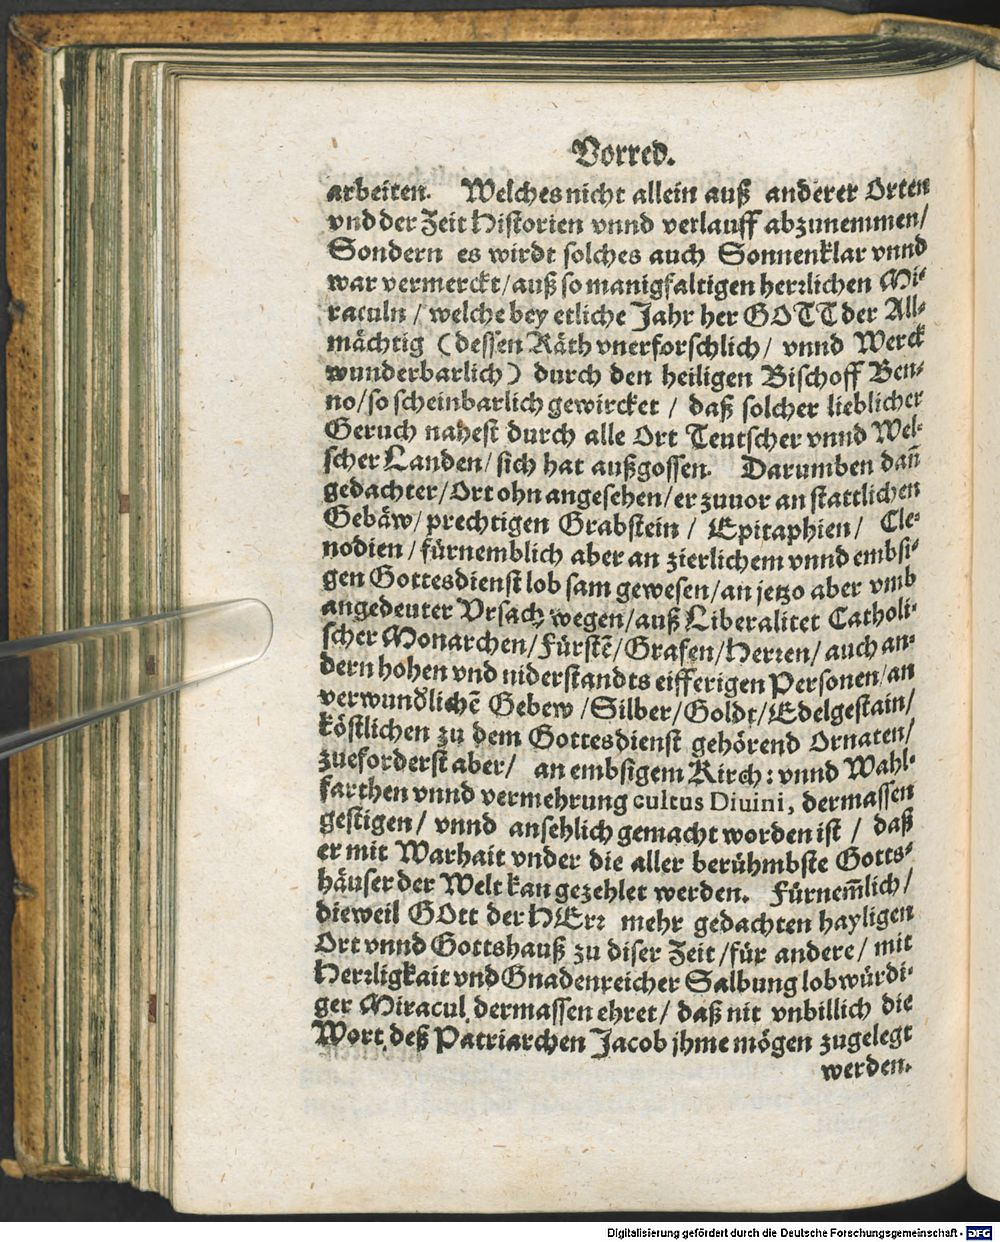 Vorred.
arbeiten. Welches nicht allein auß anderer Orten
vnd der Zeit Historien vnnd verlauff abzunemmen/
Sondern es wirdt solches auch Sonnenklar vnnd
war vermerckt/auß so manigfaltigen herrlichen Mi-
raculn / welche bey etliche Jahr her GOTT der All-
mächtig (dessen Räth vnerforschlich/ vnnd Werck
wunderbarlich) durch den heiligen Bischoff Ben-
no/so scheinbarlich gewircket / daß solcher lieblicher
Geruch nahest durch alle Ort Teutscher vnnd Wel-
scher Landen/sich hat außgossen. Darumben dañ
gedachter/Ort ohn angesehen/er zuuor an stattlichen
Gebäw/prechtigen Grabstein / Epitaphien/ Cle-
nodien /fürnemblich aber an zierlichem vnnd embsi-
gen Gottesdienst lob sam gewesen/an jetzo aber vmb
angedeuter Vrsach wegen/auß Liberalitet Catholi-
scher Monarchen/Fürstẽ/Grafen/Herren/ auch an-
dern hohen vnd niderstandts eifferigen Personen/an
verwundlichẽ Gebew /Silber/Goldt/Edelgestain/
köstlichen zu dem Gottesdienst gehörend Ornaten/
zueforderst aber/ an embsigem Kirch: vnnd Wahl-
farthen vnnd vermehrung cultus Diuini, dermassen
gestigen/ vnnd ansehlich gemacht worden ist / daß
er mit Warhait vnder die aller berühmbste Gotts-
häuser der Welt kan gezehlet werden. Fürnem̃lich/
dieweil GOtt der HErr mehr gedachten hayligen
Ort vnnd Gottshauß zu diser Zeit /für andere/ mit
Herrligkait vnd Gnadenreicher Salbung lobwürdi-
ger Miracul dermassen ehret/ daß nit vnbillich die
Wort deß Patriarchen Jacob jhme mögen zugelegt
werden.
Digitalisierung gefördert durch die Deutsche Forschungsgemeinschaft - DFG